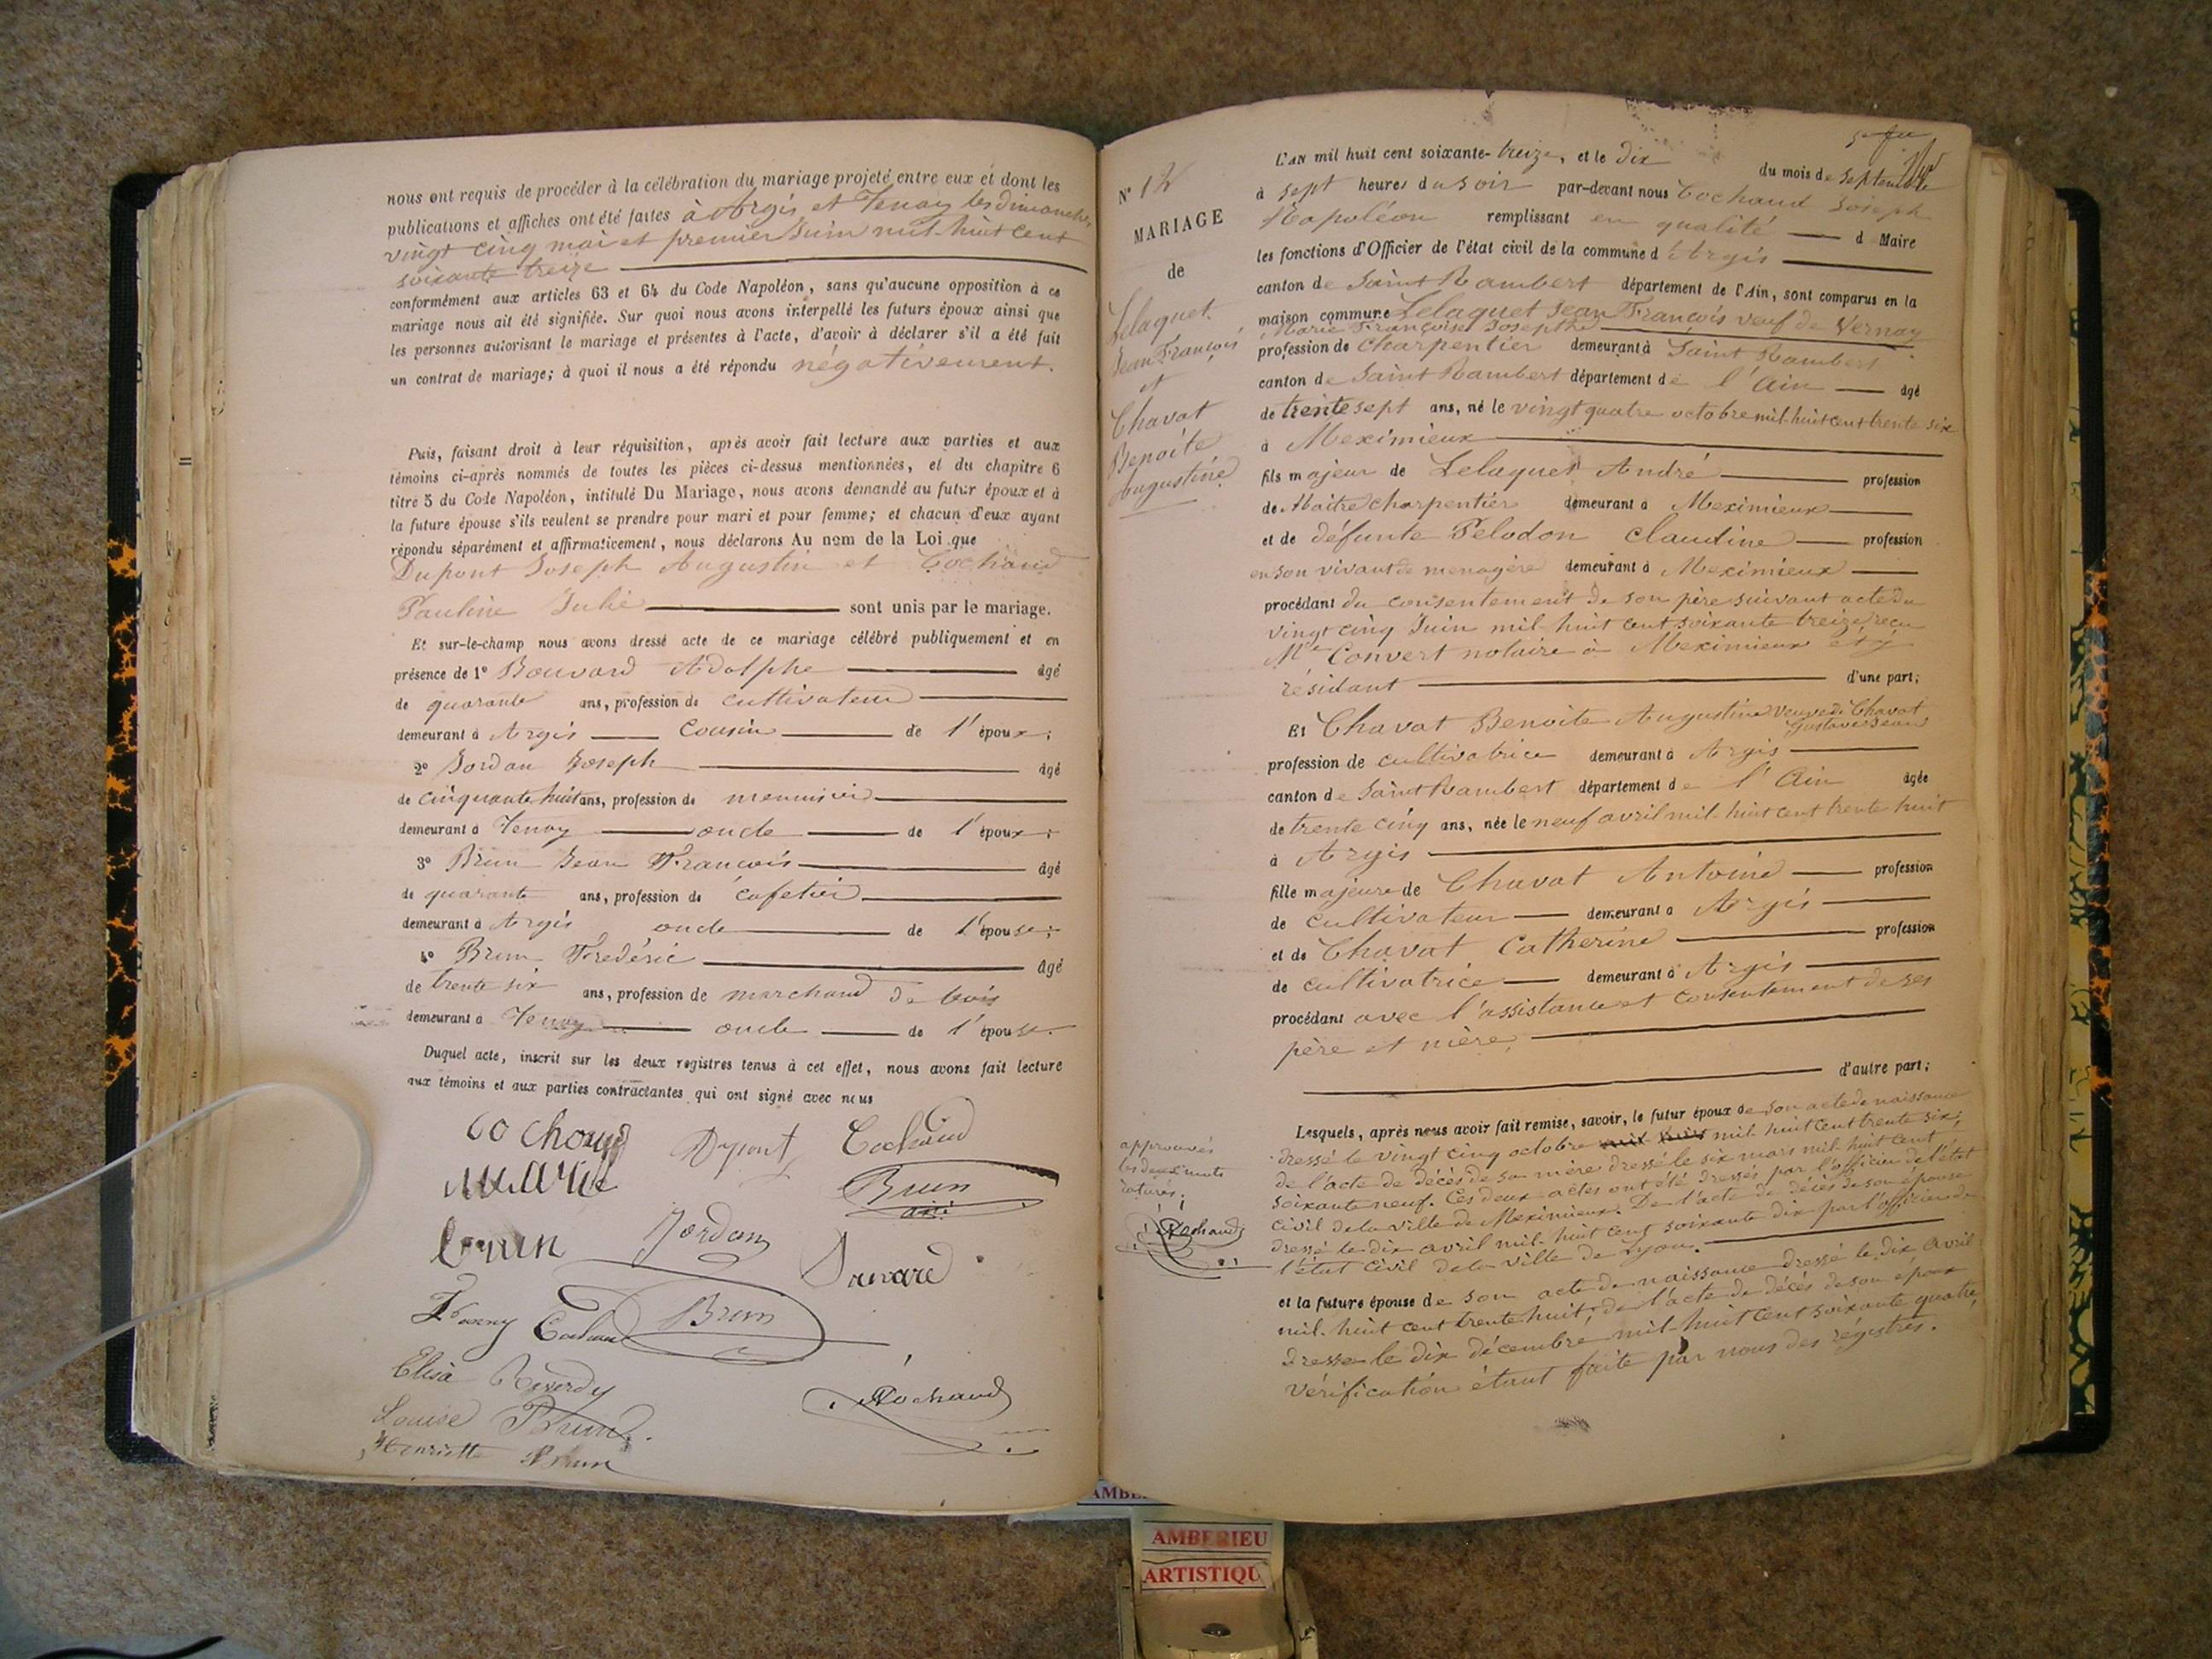 nous ont requis de procéder à la célébration du mariage projeté entre eux et dont les
publications et affiches ont été faites à Argis et Tenay les dimanches
vingt cinq mai et premier Juin mil huit cent
soixante treize
conformément aux articles 63 et 64 du Code Napoléon, sans qu'aucune opposition à ce
mariage nous ait été signifiée. Sur quoi nous avons interpellé les futurs époux ainsi que
les personnes autorisant le mariage et présentes à l'acte, d'avoir à déclarer s'il a été fait
un contrat de mariage; à quoi il nous a été répondu négativement.
Puis, faisant droit à leur réquisition, après avoir fait lecture aux parties et aux
témoins ci-après nommés de toutes les pièces ci-dessus mentionnées, et du chapitre 6
titre 5 du Code Napoléon, intitulé Du Mariage, nous avons demandé au futur époux et à
la future épouse s'ils veulent se prendre pour mari et pour femme; et chacun d'eux ayant
répondu séparément et affirmativement, nous déclarons Au nom de la Loi que
Dupont Joseph Augustin et Cochaud
Pauline Julie sont unis par le mariage.
Et sur-le-champ nous avons dressé acte de ce mariage célébré publiquement et en
présence de 1° Bouvard Adolphe âgé
de quarante ans, profession de cultivateur
demeurant à Argis cousin de l'époux;
2° Jordan Joseph âgé
de cinquante huit ans, profession de menuisier
demeurant à Tenay oncle de l'époux;
3° Brun Jean François âgé
de quarante ans, profession de cafetier
demeurant à Argis oncle de l'épouse;
4° Brun Frédéric âgé
de trente six ans, profession de marchand de bois
demeurant à Tenay oncle de l'épouse.
Duquel acte, inscrit sur les deux registres tenus à cet effet, nous avons fait lecture
aux témoins et aux parties contractantes qui ont signé avec nous
Cochaud Dupont Cochaud
Brun
Brun Jordan
Fanny Cochaud Brun
Elisa Reverdy
Cochaud
Louise Brun
Henriette Brun
N° 12
MARIAGE
de
Lelaquet
Jean François
et
Chavat
Benoite
Augustine
L'AN mil huit cent soixante-treize, et le dix du mois de Septembre
à sept heures du soir par-devant nous Cochaud Joseph
Napoléon remplissant en qualité d Maire
les fonctions d'Officier de l'état civil de la commune d'Argis
canton de Saint Rambert département de l'Ain, sont comparus en la
maison commune Lelaquet Jean François veuf de Vernay
Marie Françoise Josephte
profession de charpentier demeurant à Saint Rambert
canton de Saint Rambert département de l'Ain âgé
de trente sept ans, né le vingt quatre octobre mil huit cent trente six
à Meximieux
fils majeur de Lelaquet André profession
de Maitre charpentier demeurant à Meximieux
et de défunte Pelodon Claudine profession
en son vivant de menagère demeurant à Meximieux
procédant du consentement de son père suivant acte du
vingt cinq Juin mil huit cent soixante treize reçu
Me Convert notaire à Meximieux et y
résidant d'une part;
Et Chavat Benoite Augustine veuve de Chavat
Gustave Jean
profession de cultivatrice demeurant à Argis
canton de Saint Rambert département de l'Ain âgée
de trente cinq ans, née le neuf avril mil huit cent trente huit
à Argis
fille majeure de Chavat Antoine profession
de cultivateur demeurant à Argis
et de Chavat Catherine profession
de cultivatrice demeurant à Argis
procédant avec l'assistance et consentement de ses
père et mère,
d'autre part;
Lesquels, après nous avoir fait remise, savoir, le futur époux de son acte de naissance
dressé le vingt cinq octobre mil huit mil huit cent trente six;
de l'acte de décès de sa mère dressé le six mars mil huit cent
soixante neuf. Ces deux actes ont été dressés par l'officier de l'état
civil de la ville de Meximieux. De l'acte de décès de son épouse
dressé le dix avril mil huit cent soixante dix par l'officier de
l'état civil de la ville de Lyon.
et la future épouse de son acte de naissance dressé le dix avril
mil huit cent trente huit, de l'acte de décès de son époux
dressé le dix décembre mil huit cent soixante quatre,
vérification étant faite par nous des régistres.
approuvés
les deux mots
raturés;
Cochaud
AMBERIEU
ARTISTIQU